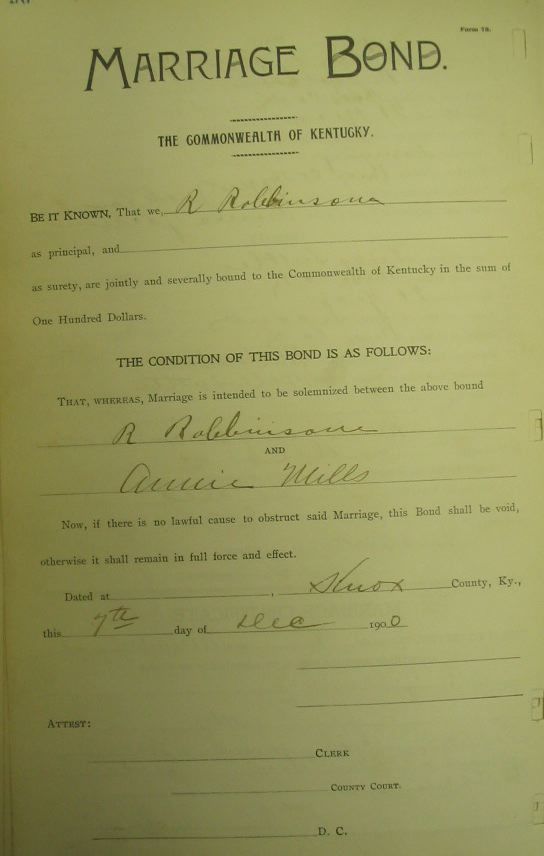 Form 18.
MARRIAGE BOND.
THE COMMONWEALTH OF KENTUCKY.
BE IT KNOWN, That we, R Robbinsone
as principal, and
as surety, are jointly and severally bound to the Commonwealth of Kentucky in the sum of
One Hundred Dollars.
THE CONDITION OF THIS BOND IS AS FOLLOWS:
THAT, WHEREAS, Marriage is intended to be solemnized between the above bound
R Robbinsone
AND
Annie Mills
Now, if there is no lawful cause to obstruct said Marriage, this Bond shall be void,
otherwise it shall remain in full force and effect.
Dated at , Knox County, Ky.,
this 7th day of Dec 1900
ATTEST:
CLERK
COUNTY COURT.
D. C.